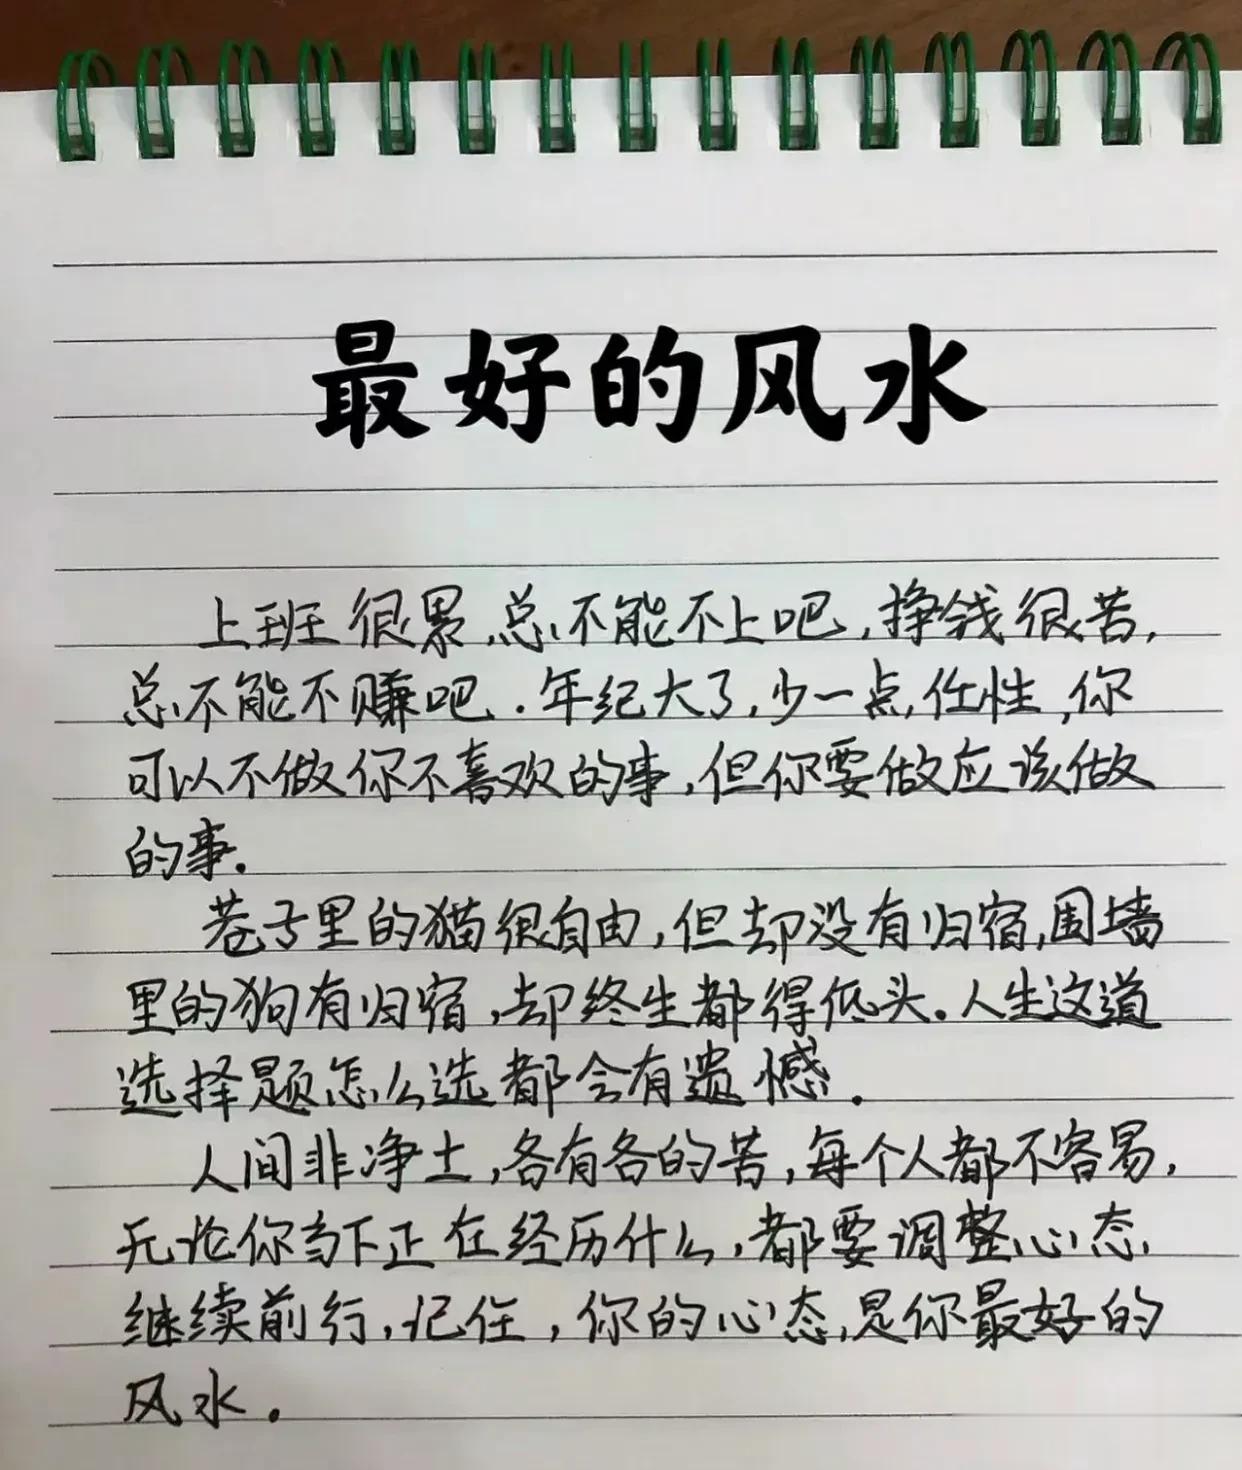 最好的风水
上班很累,总不能不上吧,挣钱很苦,
总不能不赚吧.年纪大了,少一点任性,你
可以不做你不喜欢的事,但你要做应该做
的事.
巷子里的猫很自由,但却没有归宿,围墙
里的狗有归宿,却终生都得低头。人生这道
选择题怎么选都会有遗憾.
人间非净土,各有各的苦,每个人都不容易,
无论你当下正在经历什么,都要调整心态,
继续前行,记住,你的心态,是你最好的
风水。